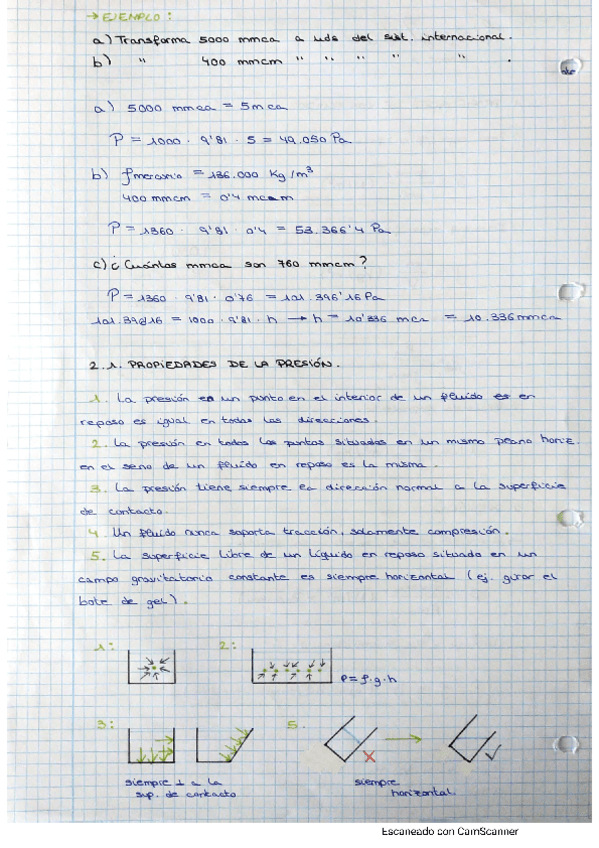 → EJEMPLO:
a) Transforma 5000 mmca a uds del sist. internacional.
b) " 400 mmcm " " " " " .
a) 5000 mmca = 5mca
P = 1000 · 9'81 · 5 = 49.050 Pa
b) ρmercurio = 136.000 Kg/m³
400 mmcm = 0'4 mcm
P = 1360 · 9'81 · 0'4 = 53.366'4 Pa
c) ¿Cuántos mmca son 760 mmcm?
P = 1360 · 9'81 · 0'76 = 101.396'16 Pa
101.396'16 = 1000 · 9'81 · h → h = 10'336 mca = 10.336mmca
2.1. PROPIEDADES DE LA PRESIÓN.
1. La presión en un punto en el interior de un fluido es en
reposo es igual en todas las direcciones.
2. La presión en todos los puntos situados en un mismo plano horiz.
en el seno de un fluido en reposo es la misma.
3. La presión tiene siempre la dirección normal a la superficie
de contacto.
4. Un fluido nunca soporta tracción, solamente compresión.
5. La superficie libre de un líquido en reposo situado en un
campo gravitatorio constante es siempre horizontal (ej. girar el
bote de gel).
1: 2:
P=ρ·g·h
3: 5.
siempre ⊥ a la siempre
sup. de contacto horizontal.
Escaneado con CamScanner